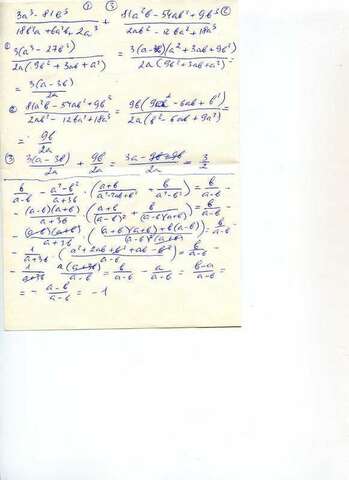 (3a³ - 81b³)/(18b²a + 6a²b + 2a³) ① + ③ (81a²b - 54ab² + 9b³)/(2ab² - 12ba² + 18a³) ②
① 3(a³ - 27b³)/2a(9b² + 3ab + a²) = 3(a - 3b)(a² + 3ab + 9b²)/2a(9b² + 3ab + a²) =
= 3(a - 3b)/2a
② (81a²b - 54ab² + 9b³)/(2ab² - 12ba² + 18a³) = 9b(9a² - 6ab + b²)/2a(b² - 6ab + 9a²) =
= 9b/2a
③ 3(a - 3b)/2a + 9b/2a = (3a - 9b + 9b)/2a = 3/2
b/(a-b) - (a³ - b²a)/(a + 3b) · ((a+b)/(a² - 2ab + b²) + b/(a² - b²)) = b/(a-b) -
- (a-b)(a+b)/(a+3b) · ((a+b)/(a-b)² + b/(a-b)(a+b)) = b/(a-b) -
- (a-b)(a+b)/(a+3b) · ((a+b)(a+b) + b(a-b))/(a-b)²(a+b) = b/(a-b) -
- 1/(a+3b) · (a² + 2ab + b² + ab - b²)/(a-b) = b/(a-b) -
- 1/(a+3b) · a(a+3b)/(a-b) = b/(a-b) - a/(a-b) = (b-a)/(a-b) =
= - (a-b)/(a-b) = -1